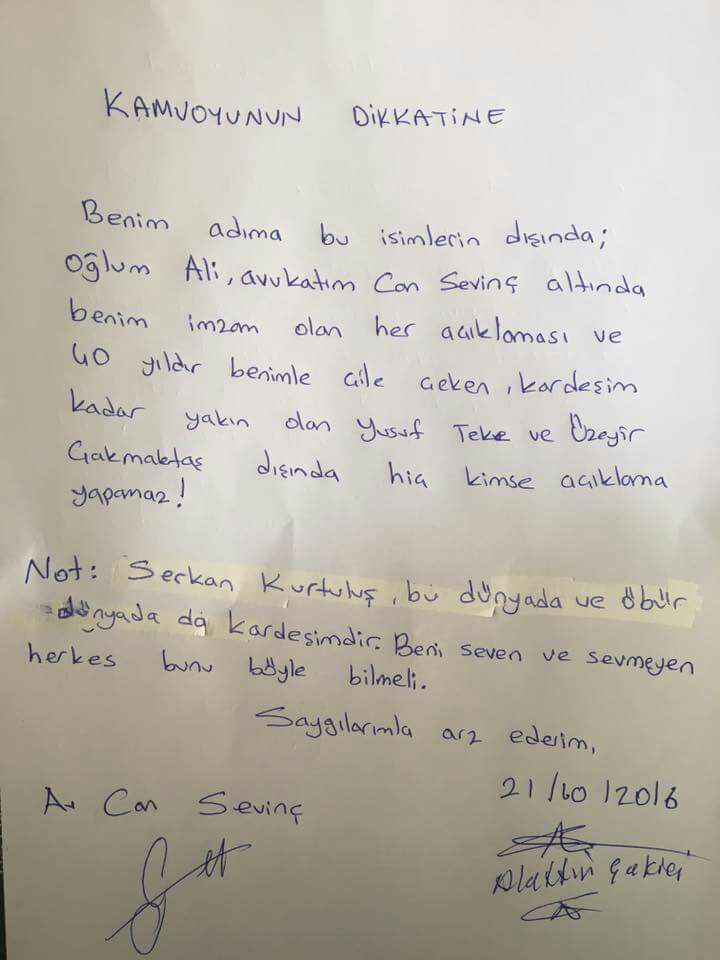 KAMUOYUNUN DİKKATİNE
Benim adıma bu isimlerin dışında;
Oğlum Ali, avukatım Can Sevinç altında
benim imzam olan her açıklaması ve
40 yıldır benimle çile çeken, kardeşim
kadar yakın olan Yusuf Teke ve Üzeyir
Çakmaktaş dışında hiç kimse açıklama
yapamaz!
Not: Serkan Kurtuluş, bu dünyada ve öbür
dünyada da kardeşimdir. Beni seven ve sevmeyen
herkes bunu böyle bilmeli.
Saygılarımla arz ederim,
21/10/2016
Av Can Sevinç
Alattin Çakıcı